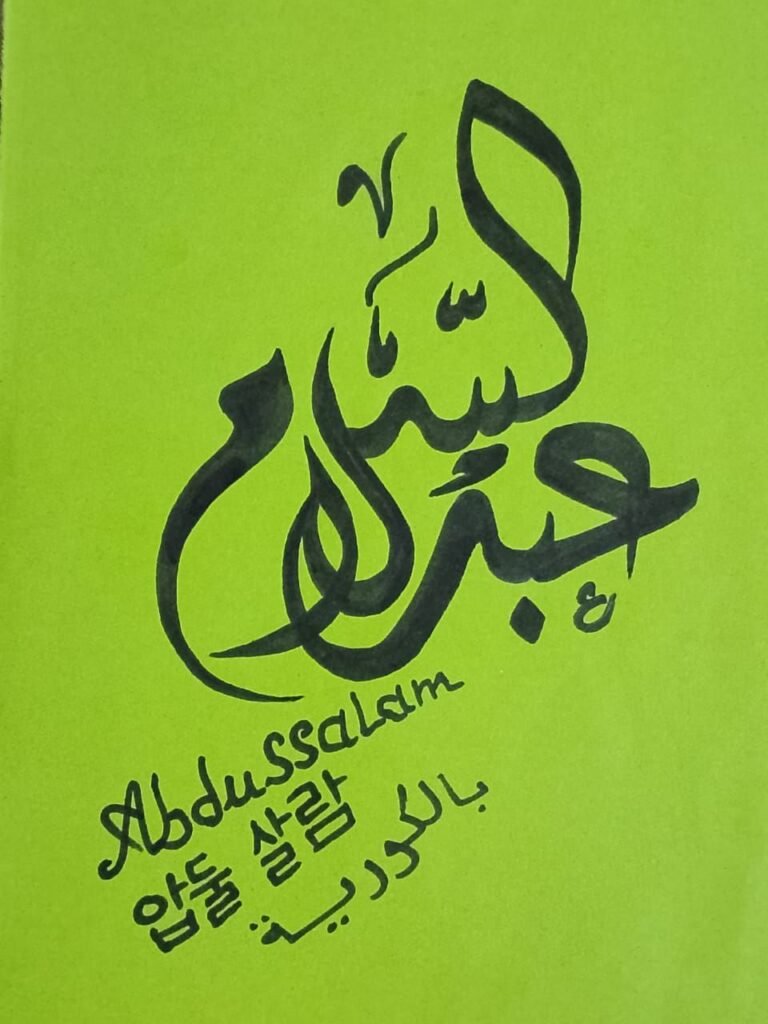 عبد السّلام
Abdussalam
압둘 살람
بالكورية